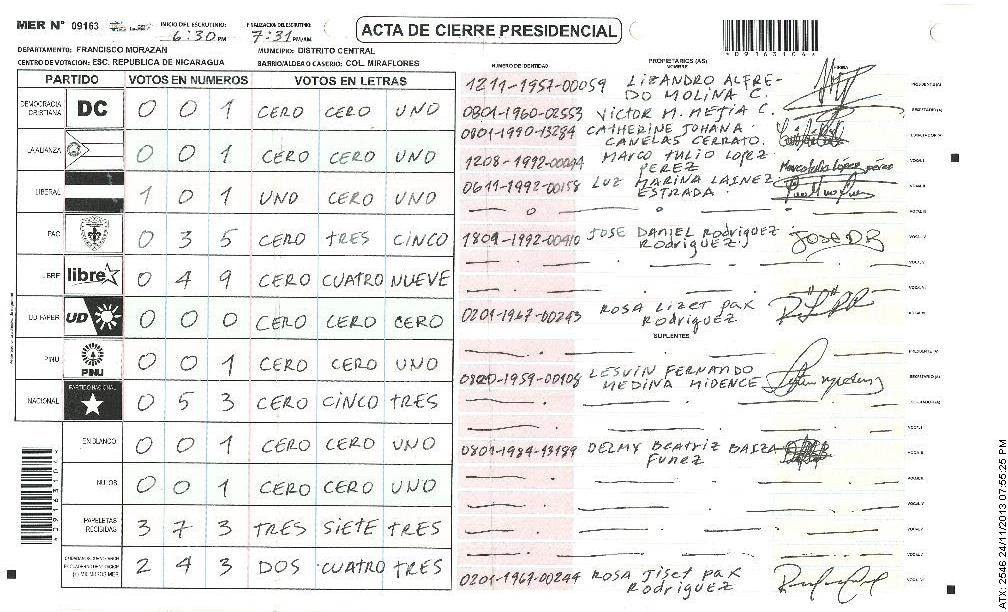 MER N° 09163 INICIO DEL ESCRUTINIO: 6:30 PM FINALIZACION DEL ESCRUTINIO: 7:31 PM/AM
ACTA DE CIERRE PRESIDENCIAL
DEPARTAMENTO: FRANCISCO MORAZAN MUNICIPIO: DISTRITO CENTRAL
CENTRO DE VOTACION: ESC. REPUBLICA DE NICARAGUA BARRIO/ALDEA O CASERIO: COL MIRAFLORES
PARTIDO VOTOS EN NUMEROS VOTOS EN LETRAS
DEMOCRACIA CRISTIANA DC 0 0 1 CERO CERO UNO
LA ALIANZA 0 0 1 CERO CERO UNO
LIBERAL 1 0 1 UNO CERO UNO
PAC 0 3 5 CERO TRES CINCO
LIBRE libre 0 4 9 CERO CUATRO NUEVE
UD FAPER UD 0 0 0 CERO CERO CERO
PINU PINU 0 0 1 CERO CERO UNO
NACIONAL PARTIDO NACIONAL 0 5 3 CERO CINCO TRES
EN BLANCO 0 0 1 CERO CERO UNO
NULOS 0 0 1 CERO CERO UNO
PAPELETAS RECIBIDAS 3 7 3 TRES SIETE TRES
2 4 3 DOS CUATRO TRES
NUMERO DE IDENTIDAD PROPIETARIOS (AS) NOMBRE FIRMA
1211-1957-00059 LIZANDRO ALFRE-
DO MOLINA C.
0801-1960-02553 VICTOR M. MEJIA C.
0801-1990-13284 CATHERINE JOHANA
CANELAS CERRATO.
1208-1992-00044 MARCO TULIO LOPEZ
PEREZ Marco tulio lópez pérez
0611-1992-00158 LUZ MARINA LAINEZ
ESTRADA.
1804-1992-00410 JOSE DANIEL RODRIGUEZ
RODRIGUEZ. JOSE DR
0201-1967-00243 ROSA LIZET PAX
RODRIGUEZ
SUPLENTES
0820-1959-00108 LESVIN FERNANDO
MEDINA MIDENCE
0801-1984-13189 DELMY BEATRIZ BAIZA
FUNEZ
0201-1967-00244 ROSA JISET PAX
RODRIGUEZ
ATX: 2546 24/11/2013 07:55:25 PM